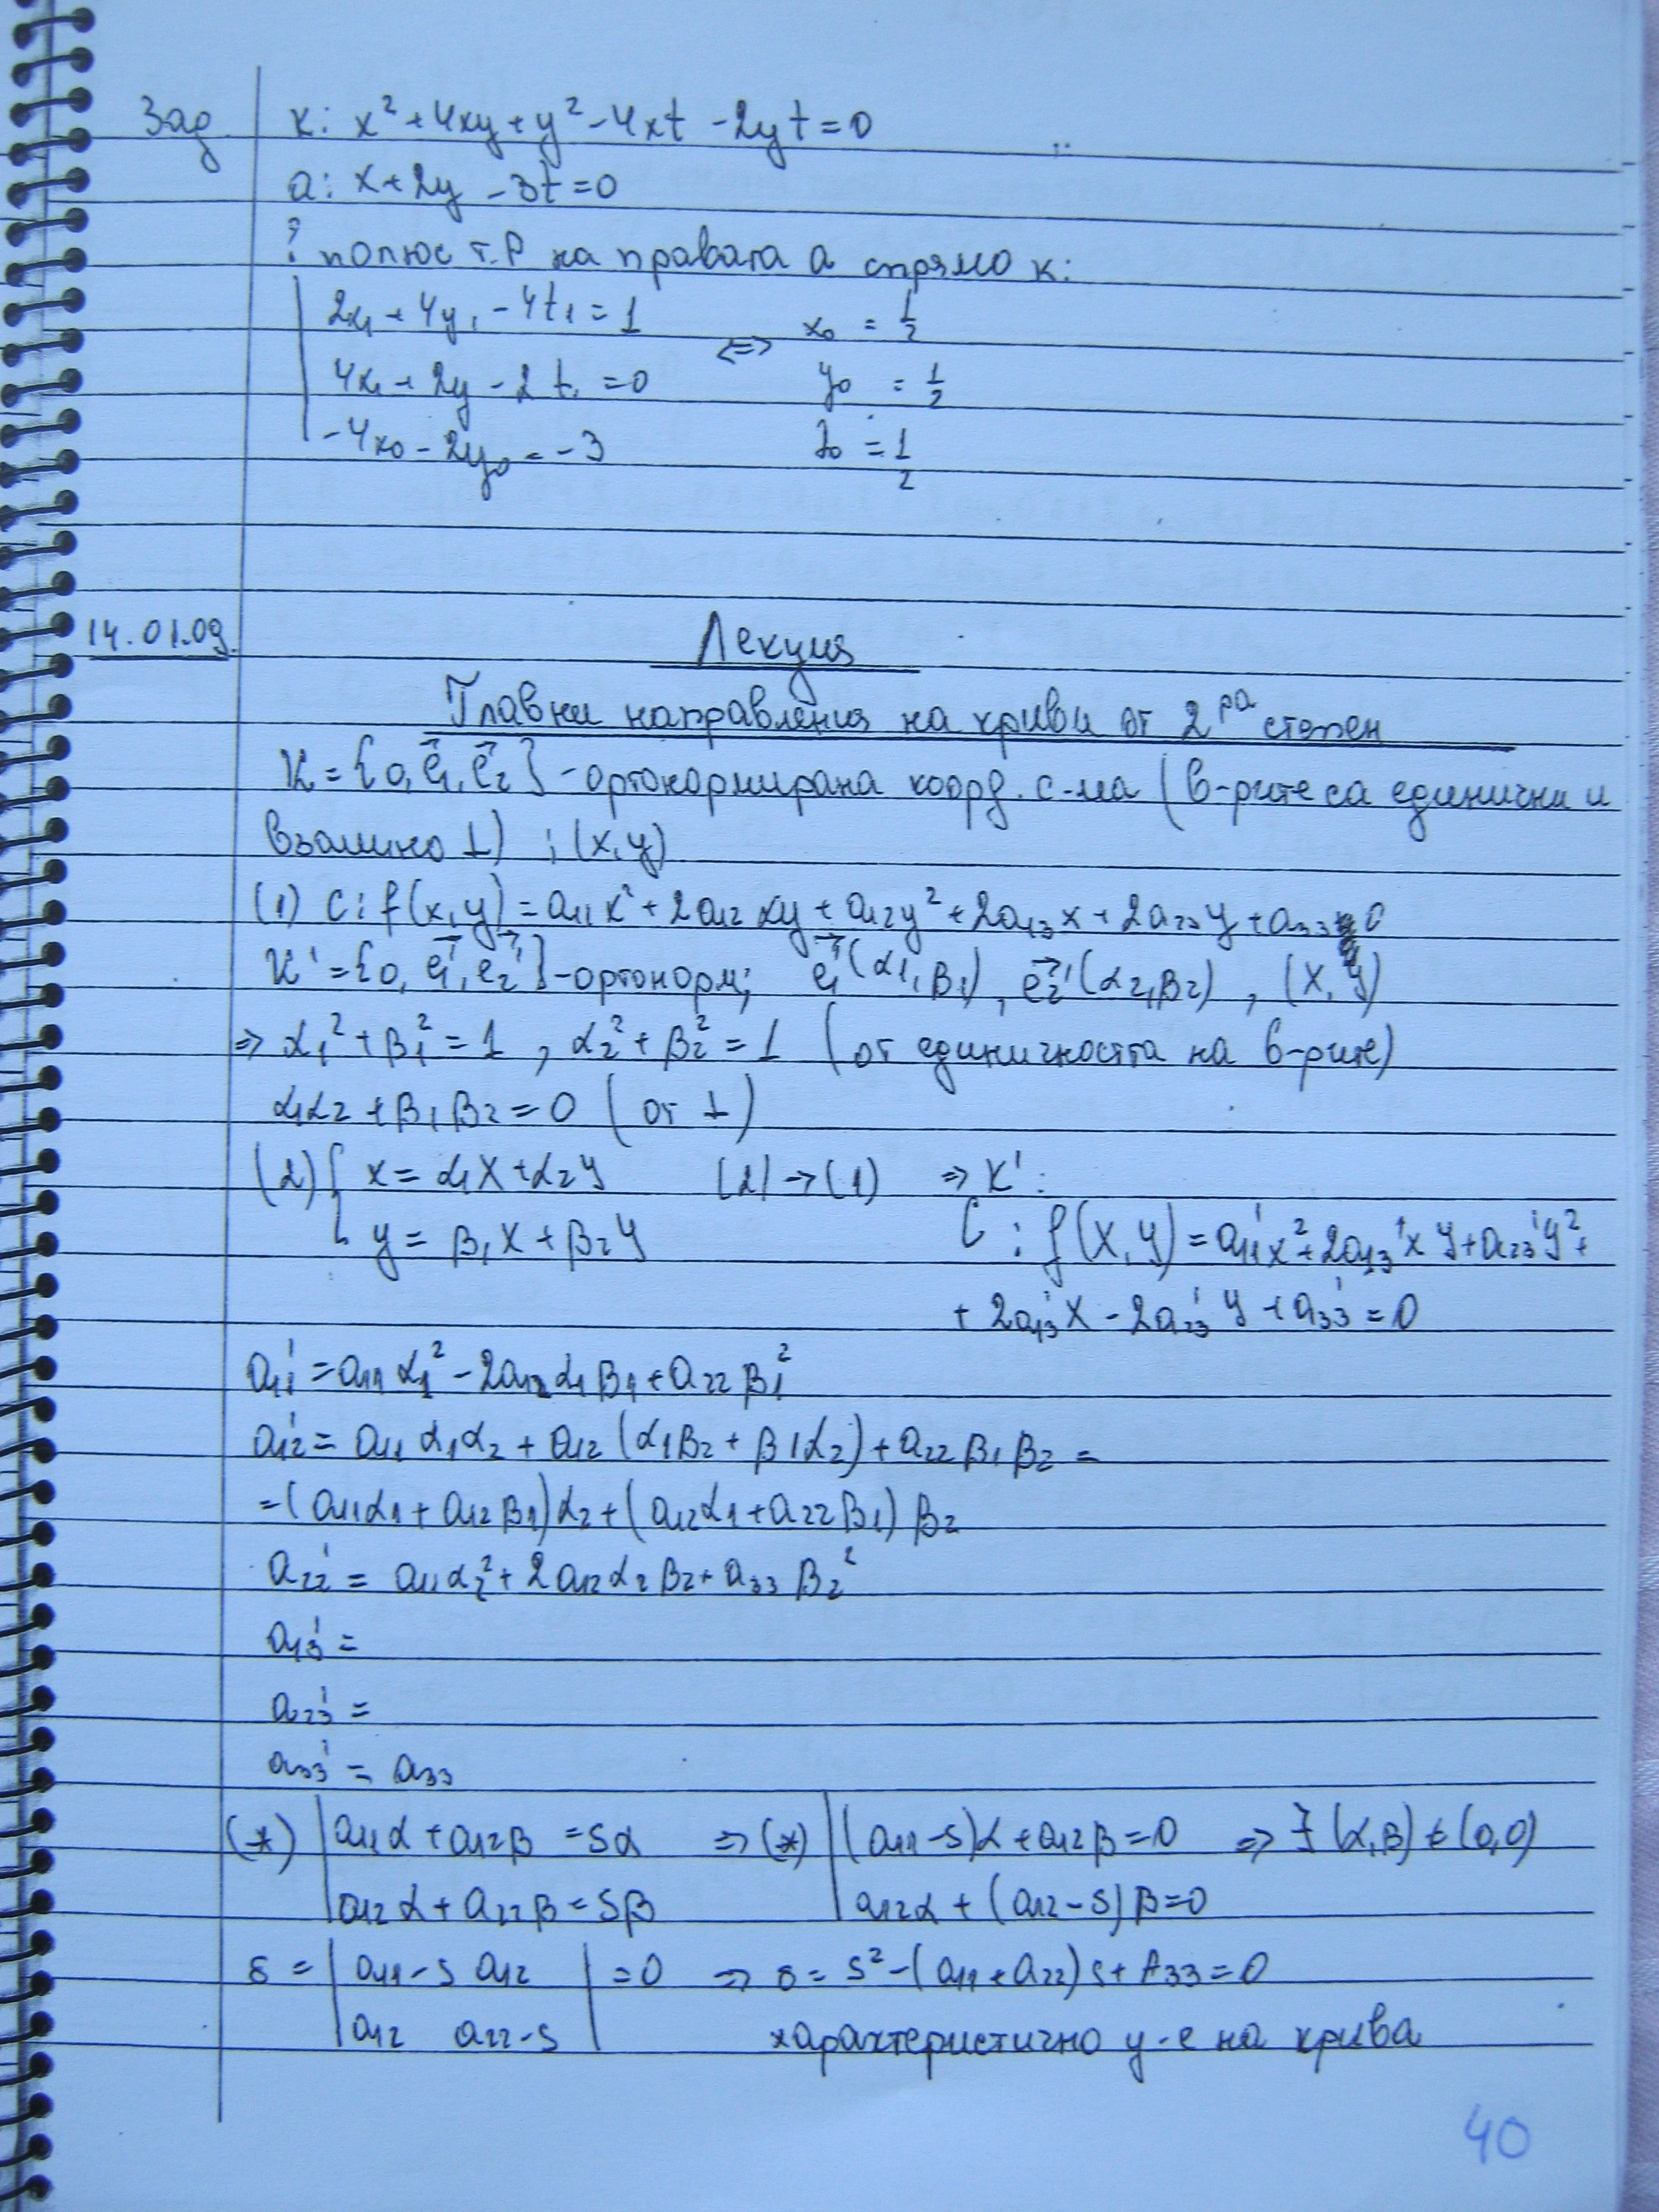 Зад. к: x² + 4xy + y² - 4xt - 2yt = 0
a: x + 2y - 3t = 0
? полюс т. P на правата a спрямо к:
| 2x₁ + 4y₁ - 4t₁ = 1 <=> x₀ = 1/2
| 4x₁ + 2y - 2t₁ = 0 y₀ = 1/2
| -4x₀ - 2y₀ = -3 t₀ = 1/2
14.01.09. Лекция
Главни направления на криви от 2ра степен
K = {0, e₁→, e₂→} - ортонормирана коорд. с-ма (в-рите са единични и
взаимно ⊥) ; (x, y)
(1) C: f(x, y) = a₁₁x² + 2a₁₂xy + a₁₂y² + 2a₁₃x + 2a₂₃y + a₃₃ = 0
K' = {0, e₁→', e₂→'} - ортонорм; e₁→'(α₁, β₁), e₂→'(α₂, β₂), (X, Y)
=> α₁² + β₁² = 1, α₂² + β₂² = 1 (от единичността на в-рите)
α₁α₂ + β₁β₂ = 0 (от ⊥)
(2) { x = α₁X + α₂Y (2) → (1) => K':
y = β₁X + β₂Y C: f(X, Y) = a₁₁'X² + 2a₁₃'XY + a₂₃'Y² +
+ 2a₁₃'X - 2a₂₃'Y + a₃₃' = 0
a₁₁' = a₁₁α₁² - 2a₁₂α₁β₁ + a₂₂β₁²
a₁₂' = a₁₁α₁α₂ + a₁₂(α₁β₂ + β₁α₂) + a₂₂β₁β₂ =
= (a₁₁α₁ + a₁₂β₁)α₂ + (a₁₂α₁ + a₂₂β₁)β₂
a₂₂' = a₁₁α₂² + 2a₁₂α₂β₂ + a₃₃β₂²
a₁₃' =
a₂₃' =
a₃₃' = a₃₃
(*) | a₁₁α + a₁₂β = sα => (*) | (a₁₁ - s)α + a₁₂β = 0 => ∃ (α, β) ≠ (0, 0)
| a₁₂α + a₂₂β = sβ | a₁₂α + (a₁₂ - s)β = 0
δ = | a₁₁ - s a₁₂ | = 0 => δ = s² - (a₁₁ + a₂₂)s + A₃₃ = 0
| a₁₂ a₂₂ - s | характеристично у-е на крива
40